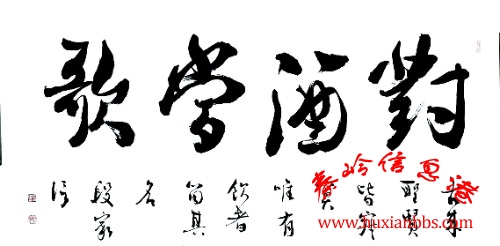 對酒當歌
古來
聖賢
皆寂
寞
唯有
飲者
留其
名
段家
信息港
www.huxianbbs.com